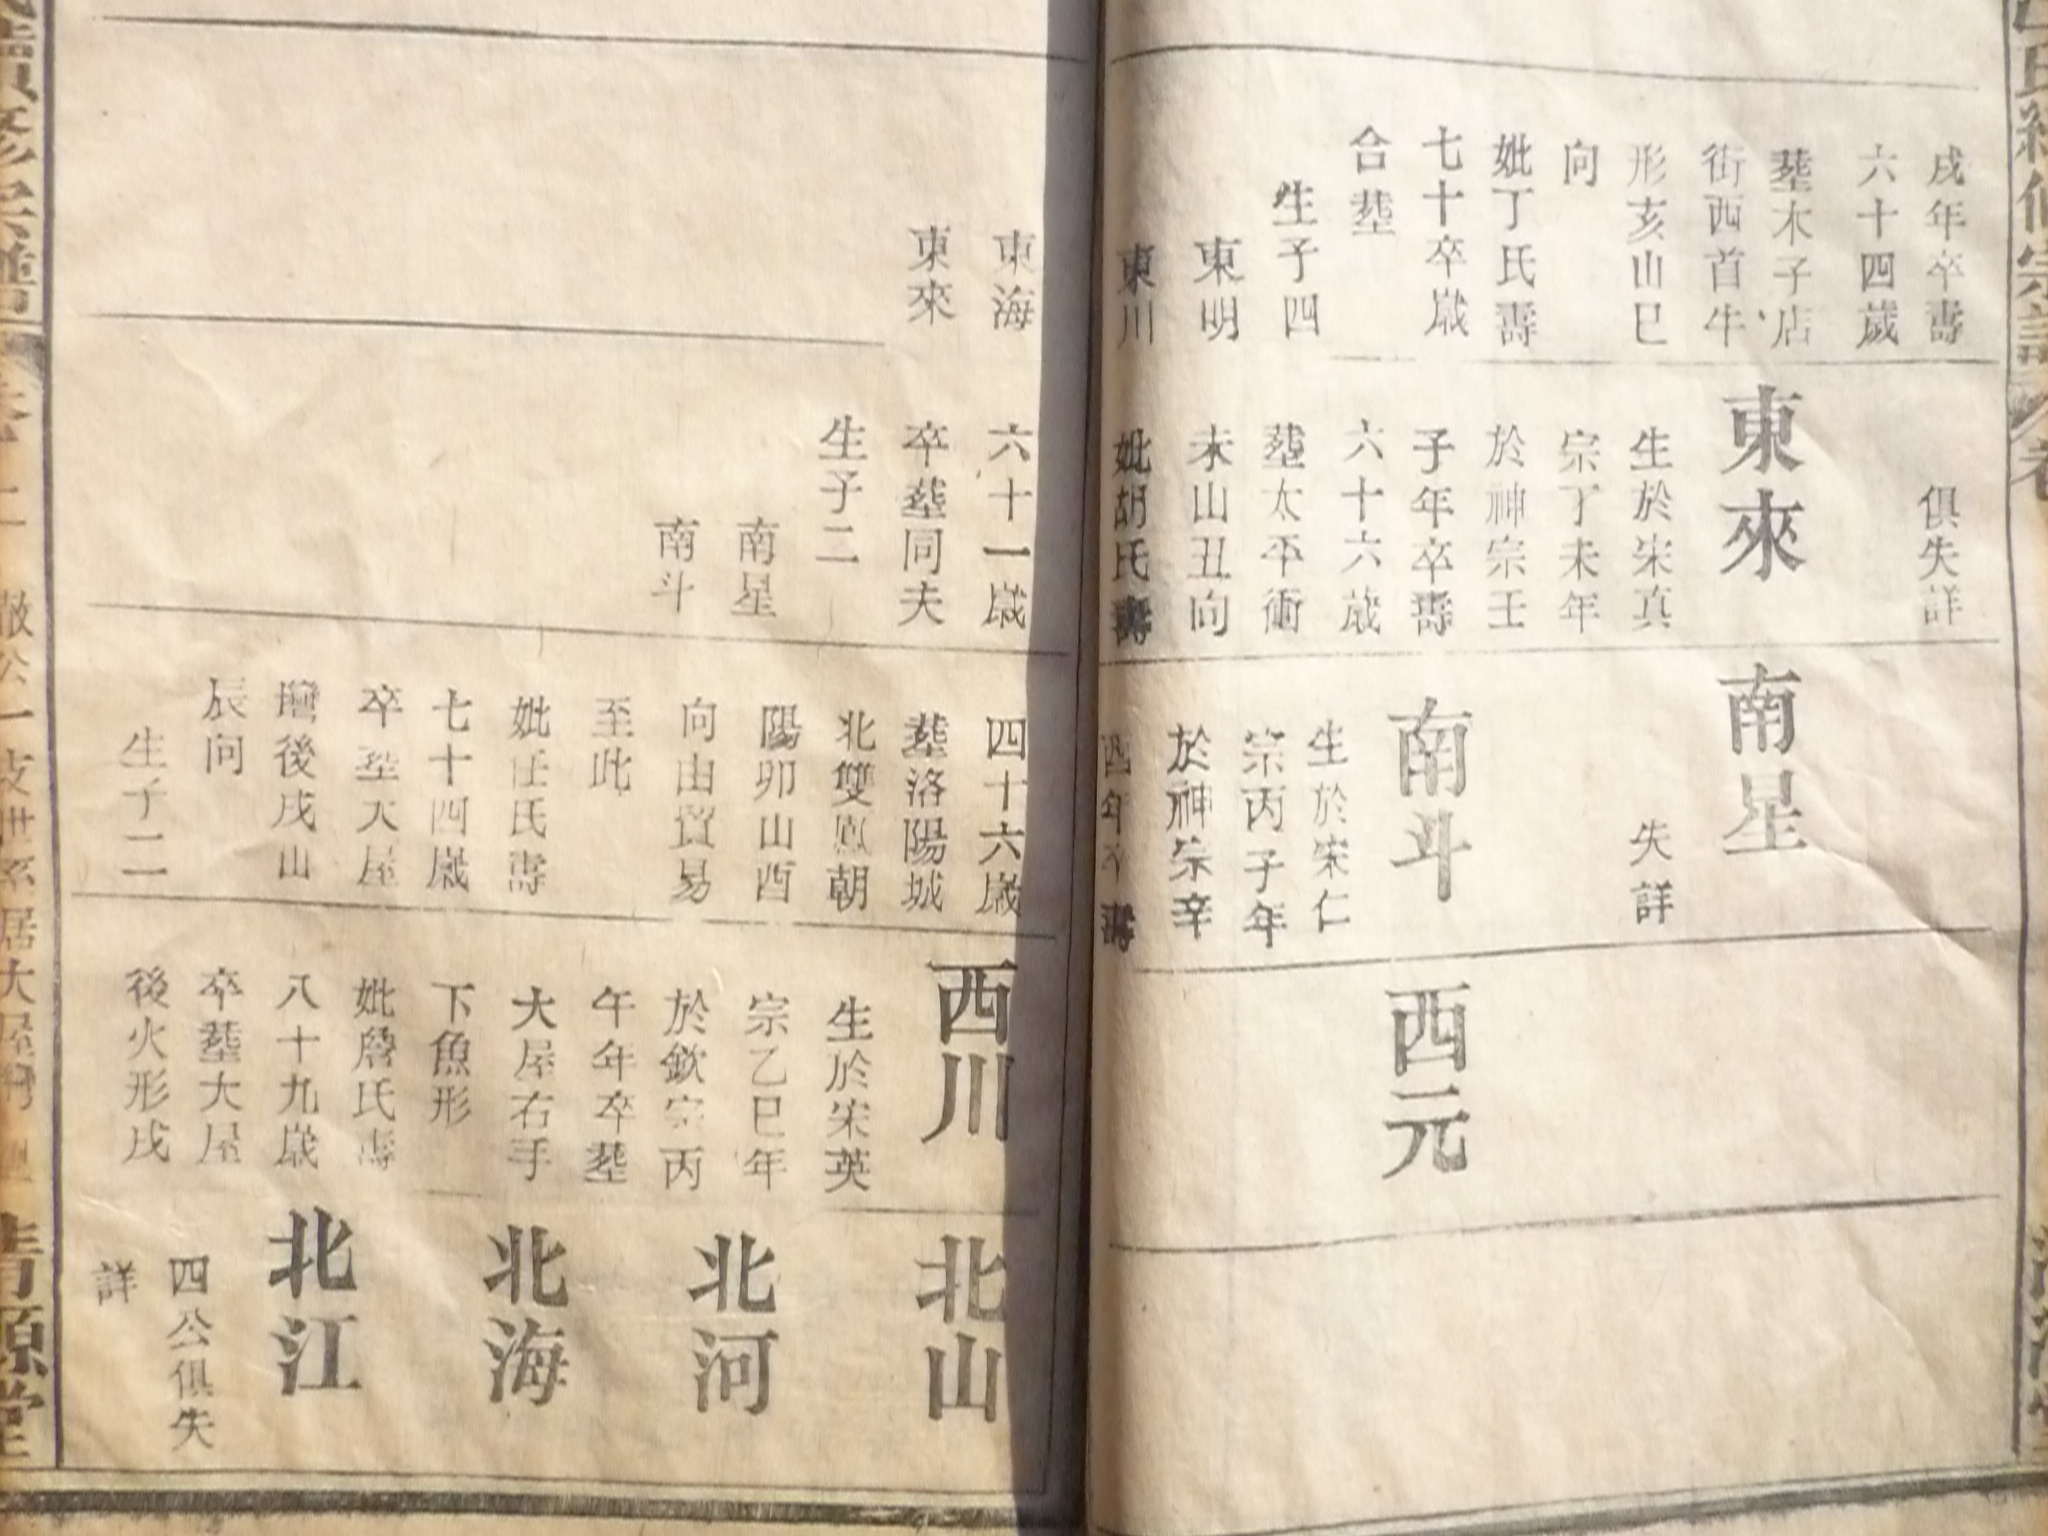 戌年卒壽
六十四歲
塟木子店
街西首牛
形亥山巳
向
妣丁氏壽
七十卒歲
合塟
生子四
東明
東川
東海
東來
俱失詳
東來
生於宋真
宗丁未年
於神宗壬
子年卒壽
六十六歲
塟太平衝
未山丑向
妣胡氏壽
六十一歲
卒塟同夫
生子二
南星
南斗
南星
失詳
南斗
生於宋仁
宗丙子年
於神宗辛
酉年卒壽
四十六歲
塟洛陽城
北雙鳳朝
陽卯山酉
向由貿易
至此
妣任氏壽
七十四歲
卒塟大屋
後戌山
辰向
生子二
西元
西川
生於宋英
宗乙巳年
於欽宗丙
午年卒塟
大屋右手
下魚形
妣詹氏壽
八十九歲
卒塟大屋
後火形戌
北山
北河
北海
北江
四公俱失
詳
氏續修宗譜
卷二
公一支世系居大屋
清源堂